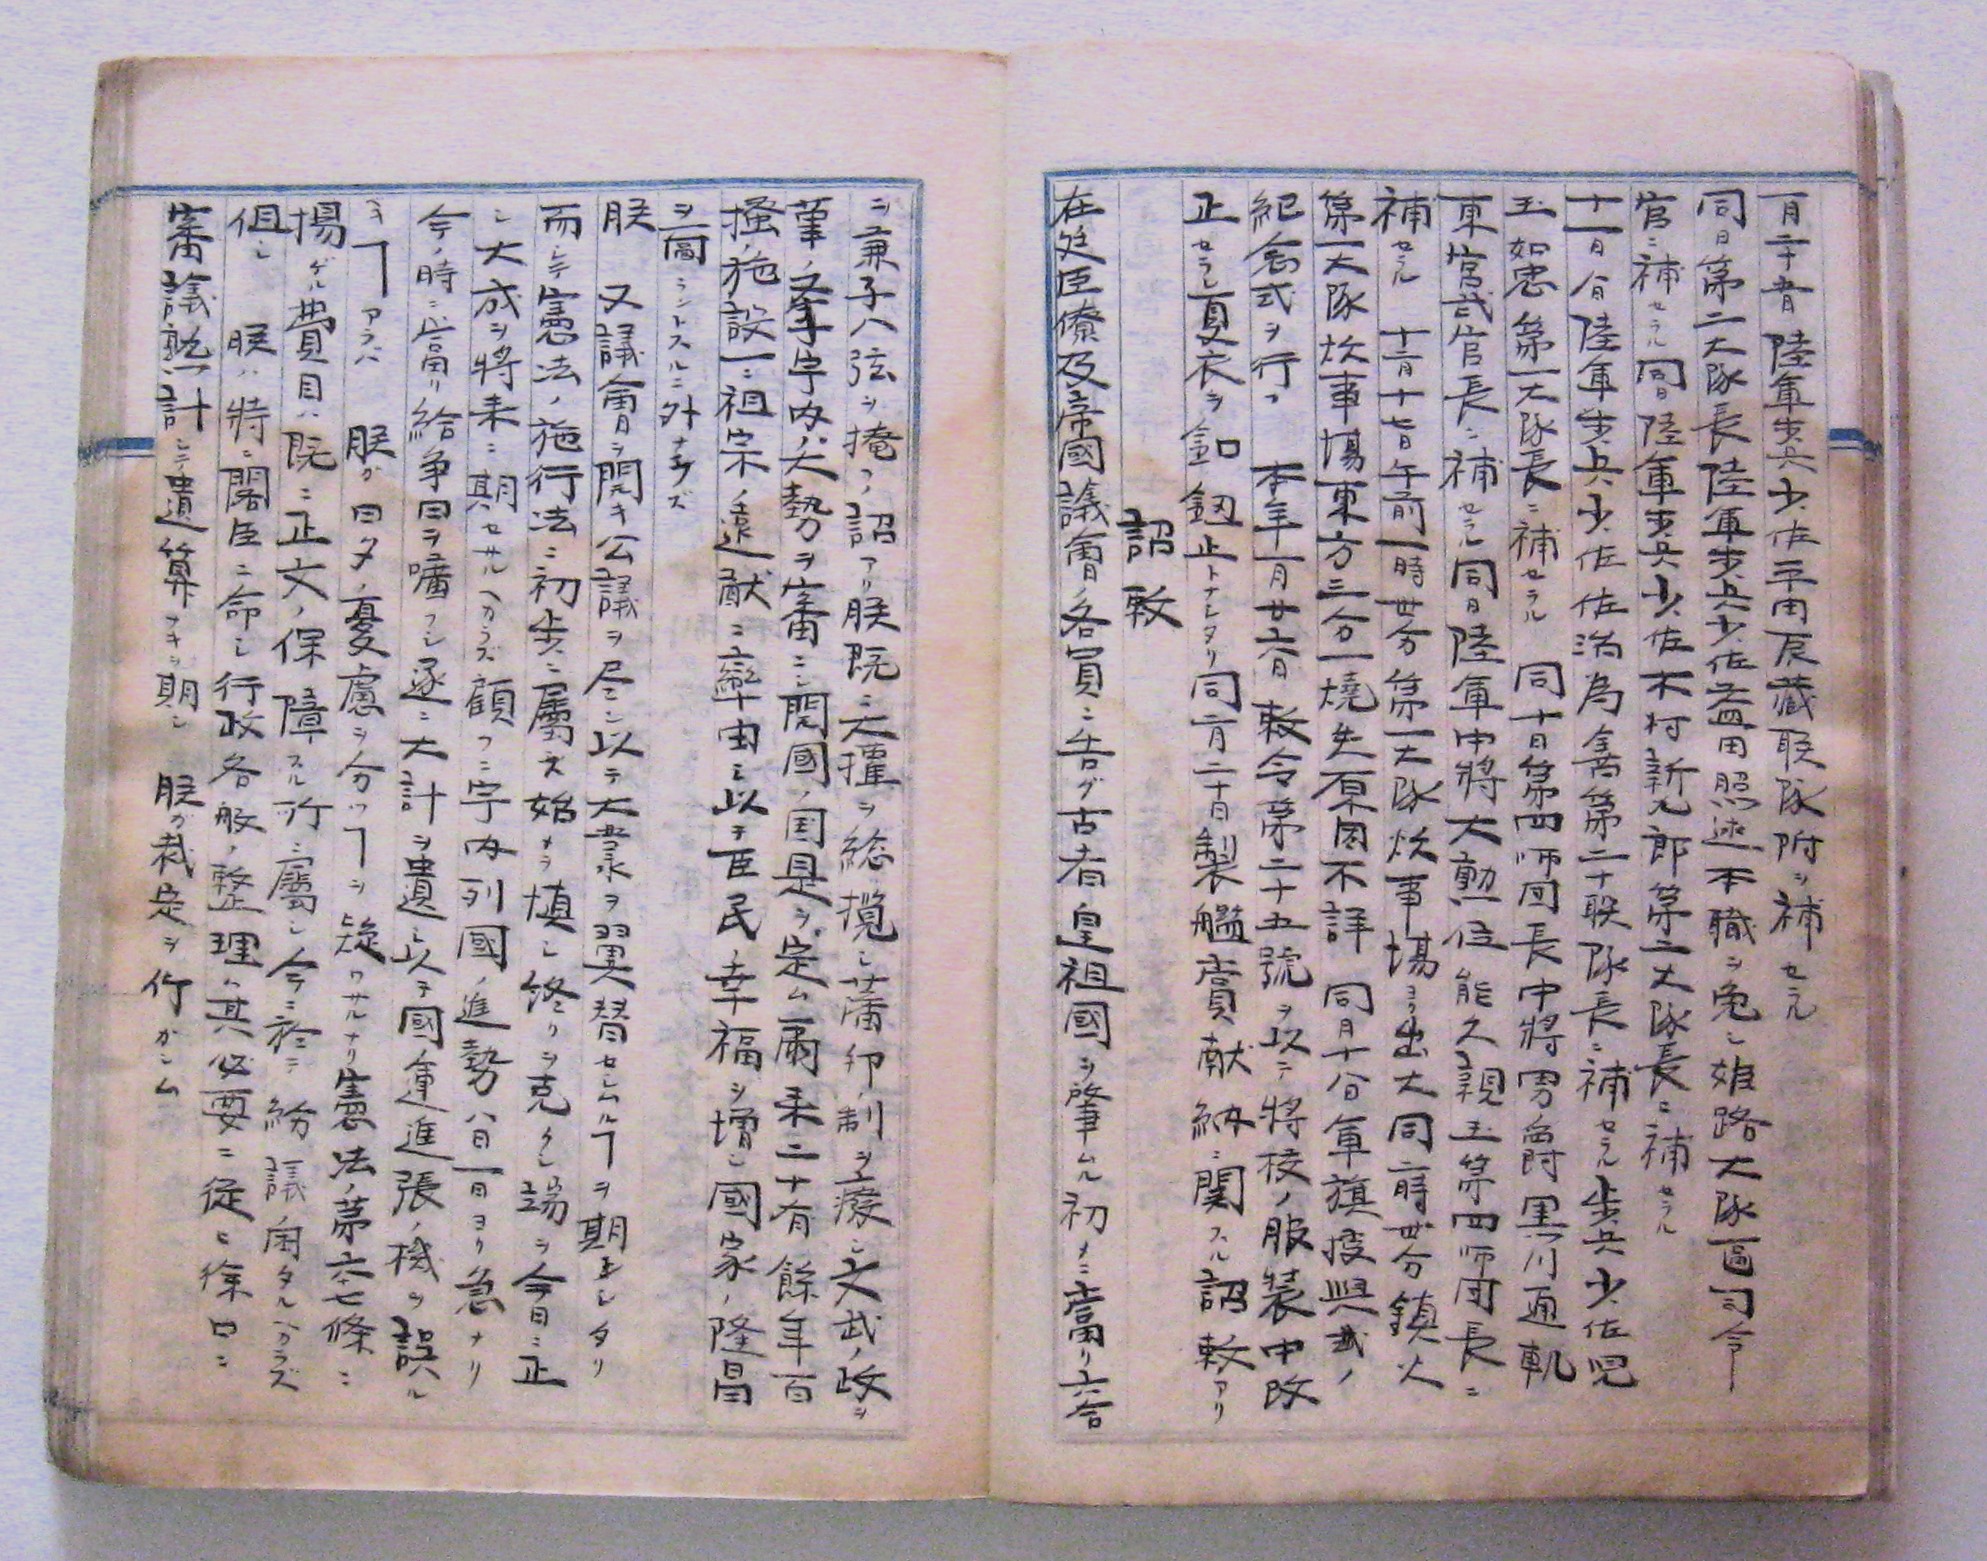 陸軍歩兵少佐平田辰蔵聯隊附ヲ補セラル
同日第二大隊長陸軍歩兵少佐益田照遠本職ヲ免シ姫路大隊區司令
官ニ補セラル同日陸軍歩兵少佐木村新九郎第二大隊長ニ補セラル
陸軍歩兵少佐佐
第二十聯隊長ニ補セラル歩兵少佐児
玉如忠第一大隊長ニ補セラル 同十日第四師団長中將男爵黒川通軌
東宮武官長ニ補セラル同日陸軍中將大勲位能久親王第四師団長ニ
補セラル 十二月十七日午前一時丗分第一大隊炊事場ヨリ出火同二時丗分鎮火
第一大隊炊事場東方三分一焼失原因不詳 同月十八日軍旗授與式ノ
紀念式ヲ行フ 本年一月廿六日敕令第二十五號ヲ以テ將校ノ服装中改
正セラレ夏衣ヲ釦止トナレタリ同二月二十日製艦費献納ニ関スル詔敕アリ
詔敕
在廷臣僚及帝國議會ノ各員ニ告グ古者皇祖國ヲ肇ムル初メニ當リ六合
ヲ兼子八弦ヲ掩フノ詔アリ朕既ニ大權ヲ総攬シ藩印ノ制ヲ廢シ文武ノ政ヲ
革メ又宇内ノ大勢ヲ審ニシ開國ノ国是ヲ定ム爾来二十有餘年百
揆ノ施設一ニ祖宗ノ遠猷ニ率由シ以テ臣民ノ幸福ヲ増シ國家ノ隆昌
ヲ圖ラントスルニ外ナラズ
朕 又議會ヲ開キ公議ヲ尽シ以テ大業ヲ翼賛セシムルヿヲ期シタリ
而シテ憲法ノ施行法ニ初歩ニ屬ス始メヲ慎シ終リヲ克クシ端ヲ今日ニ正
シ大成ヲ將来ニ期セサルヘカラズ顧フニ宇内列國ノ進勢ハ日一日ヨリ急ナリ
今ノ時ニ當リ紛争日ヲ曠フシ遂ニ大計ヲ遺シ以テ國運進張ノ機ヲ誤ル
ヿアラバ 朕ガ
憂慮ヲ分ツヿヲ疑ワサルナリ憲法第六十七條ニ
掲ゲル費目ハ既ニ正文ノ保障スル所ニ屬シ今ニ於テ紛議ノ因タルベカラズ
但シ 朕ハ特ニ閣臣ニ命シ行政各般ノ整理ハ其必要ニ従ヒ徐ロニ
審議熟計シテ遺算ナキヲ期シ 朕ガ裁定ヲ仰カシム